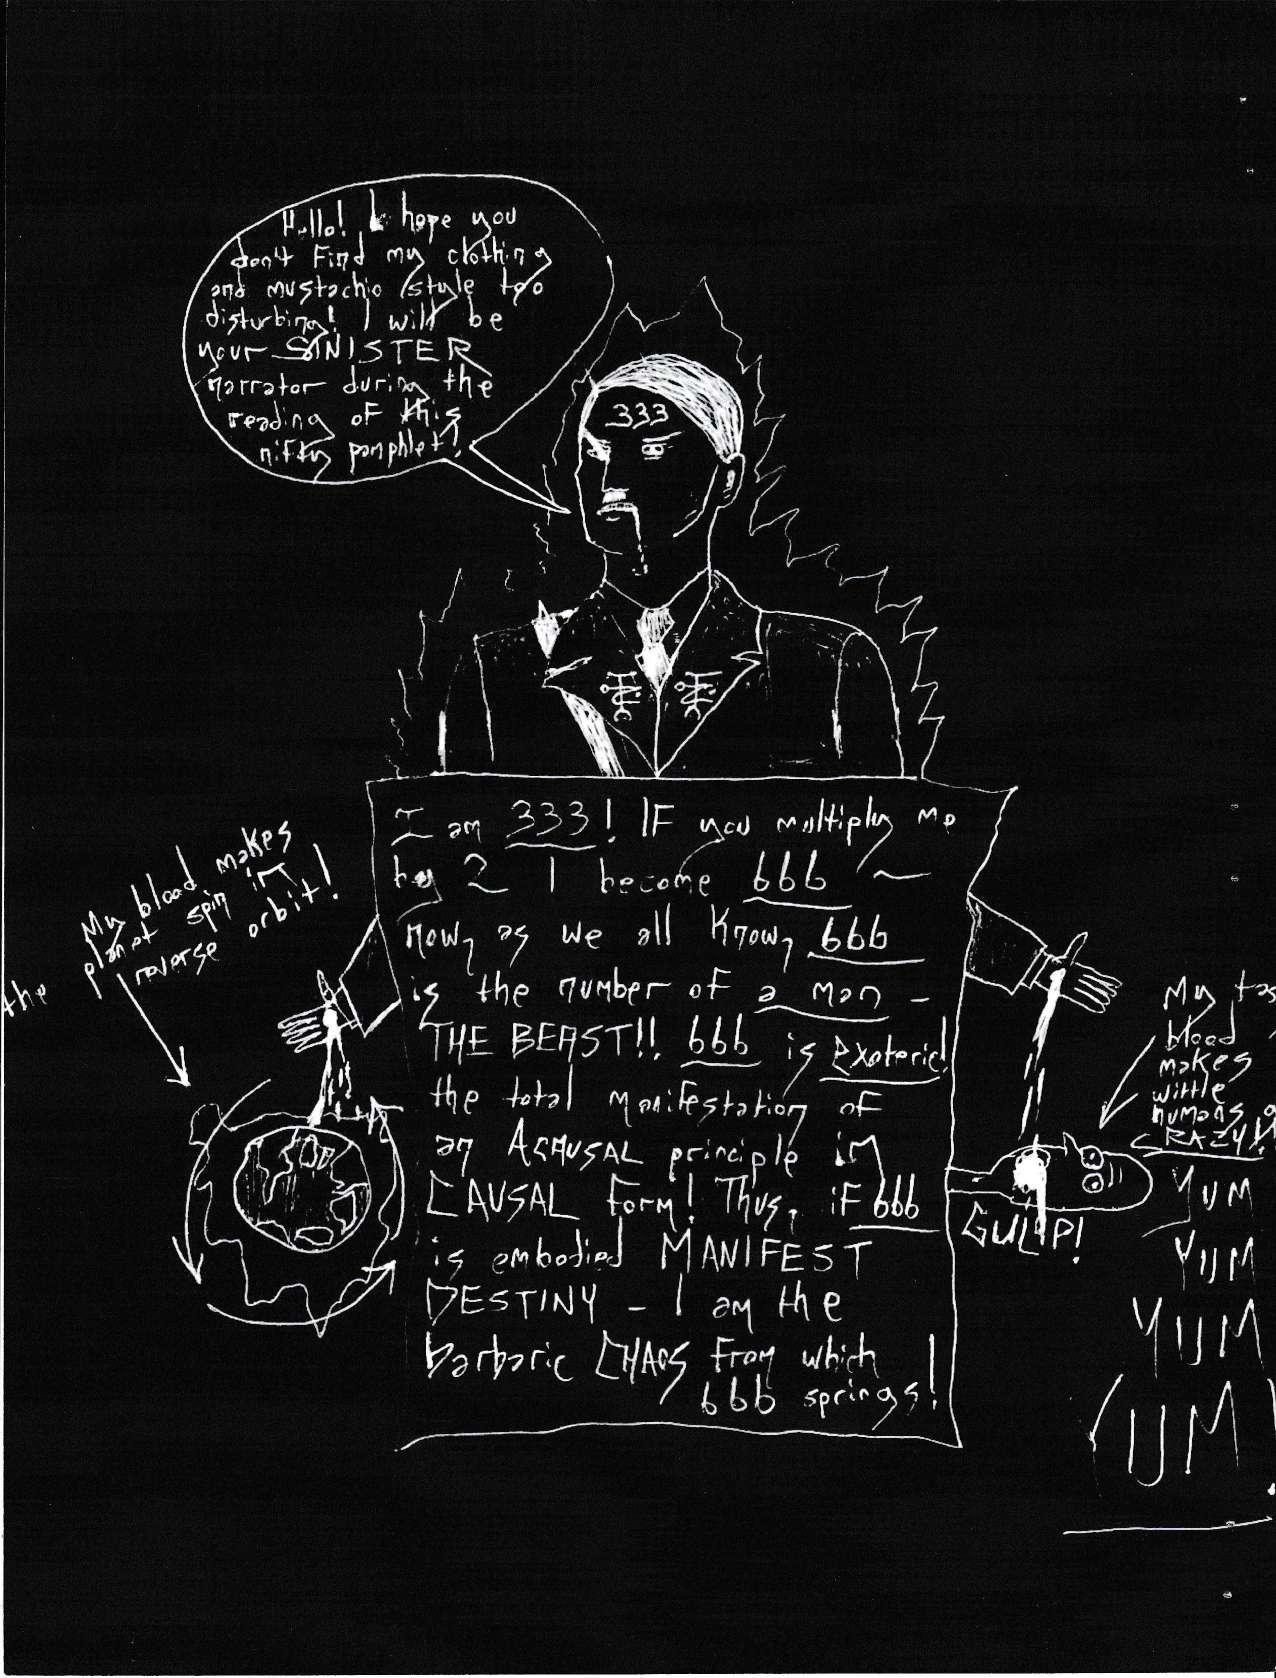 Hello! I hope you
don't Find my clothing
and mustachio style too
disturbing! I will be
your SINISTER
narrator during the
reading of this
nifty pamphlet!
333
I am 333! IF you multiply me
by 2 I become 666 ~
now, as we all know, 666
is the number of a man -
THE BEAST!! 666 is exoteric!
the total manifestation of
an ACAUSAL principle in
CAUSAL Form! Thus, iF 666
is embodied MANIFEST
DESTINY - I am the
barbaric CHAOS From which
666 springs!
My blood makes
the planet spin in
reverse orbit!
My
blood
makes
wittle
humans
CRAZY!
GULP!
YUM
YUM
YUM
UM